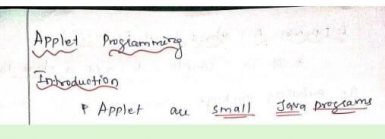 Applet Programming
Introduction
Applet are small Java programs